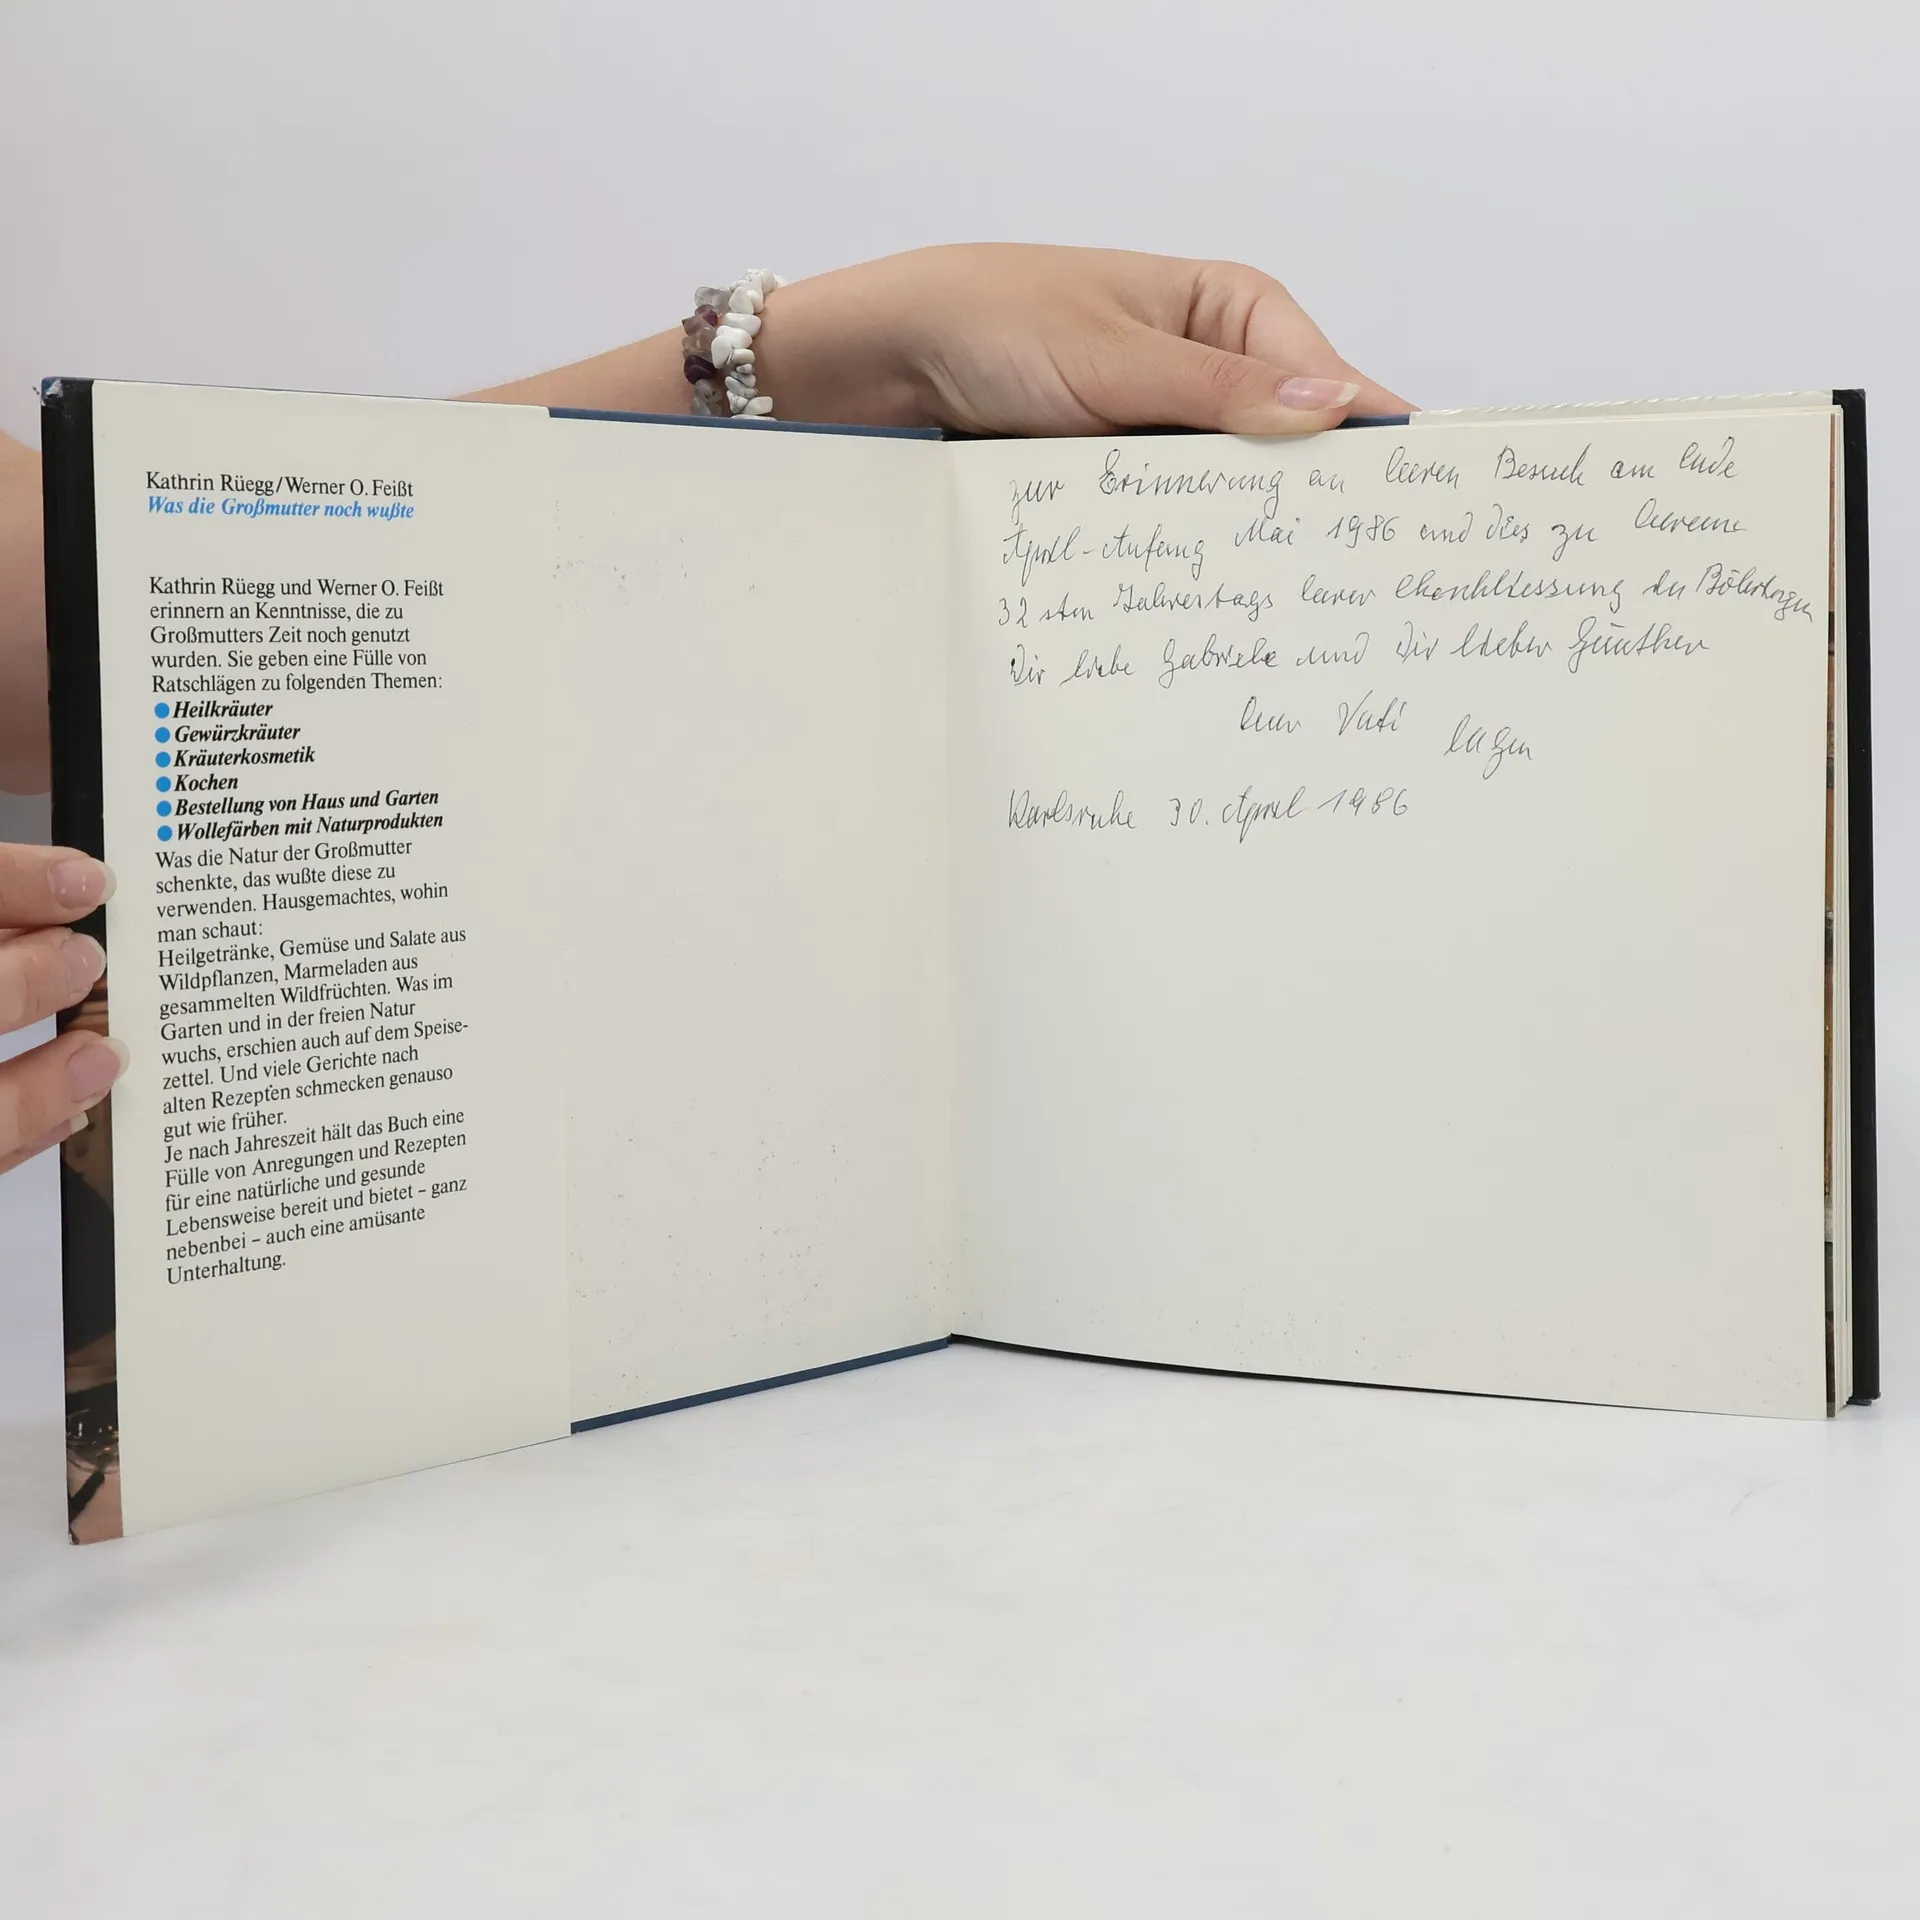 Kathrin Rüegg/Werner O. Feißt
Was die Großmutter noch wußte
Kathrin Rüegg und Werner O. Feißt
erinnern an Kenntnisse, die zu
Großmutters Zeit noch genutzt
wurden. Sie geben eine Fülle von
Ratschlägen zu folgenden Themen:
● Heilkräuter
● Gewürzkräuter
● Kräuterkosmetik
● Kochen
● Bestellung von Haus und Garten
● Wollefärben mit Naturprodukten
Was die Natur der Großmutter
schenkte, das wußte diese zu
verwenden. Hausgemachtes, wohin
man schaut:
Heilgetränke, Gemüse und Salate aus
Wildpflanzen, Marmeladen aus
gesammelten Wildfrüchten. Was im
Garten und in der freien Natur
wuchs, erschien auch auf dem Speise-
zettel. Und viele Gerichte nach
alten Rezepten schmecken genauso
gut wie früher.
Je nach Jahreszeit hält das Buch eine
Fülle von Anregungen und Rezepten
für eine natürliche und gesunde
Lebensweise bereit und bietet – ganz
nebenbei – auch eine amüsante
Unterhaltung.
zur Erinnerung an Euren Besuch am Ende
April-Anfang Mai 1986 und dies zu Eurem
32 sten Jahrestags Eurer Eheschliessung
Dir liebe Gabriele und Dir lieber Günther
Euer Vati
Karlsruhe 30. April 1986